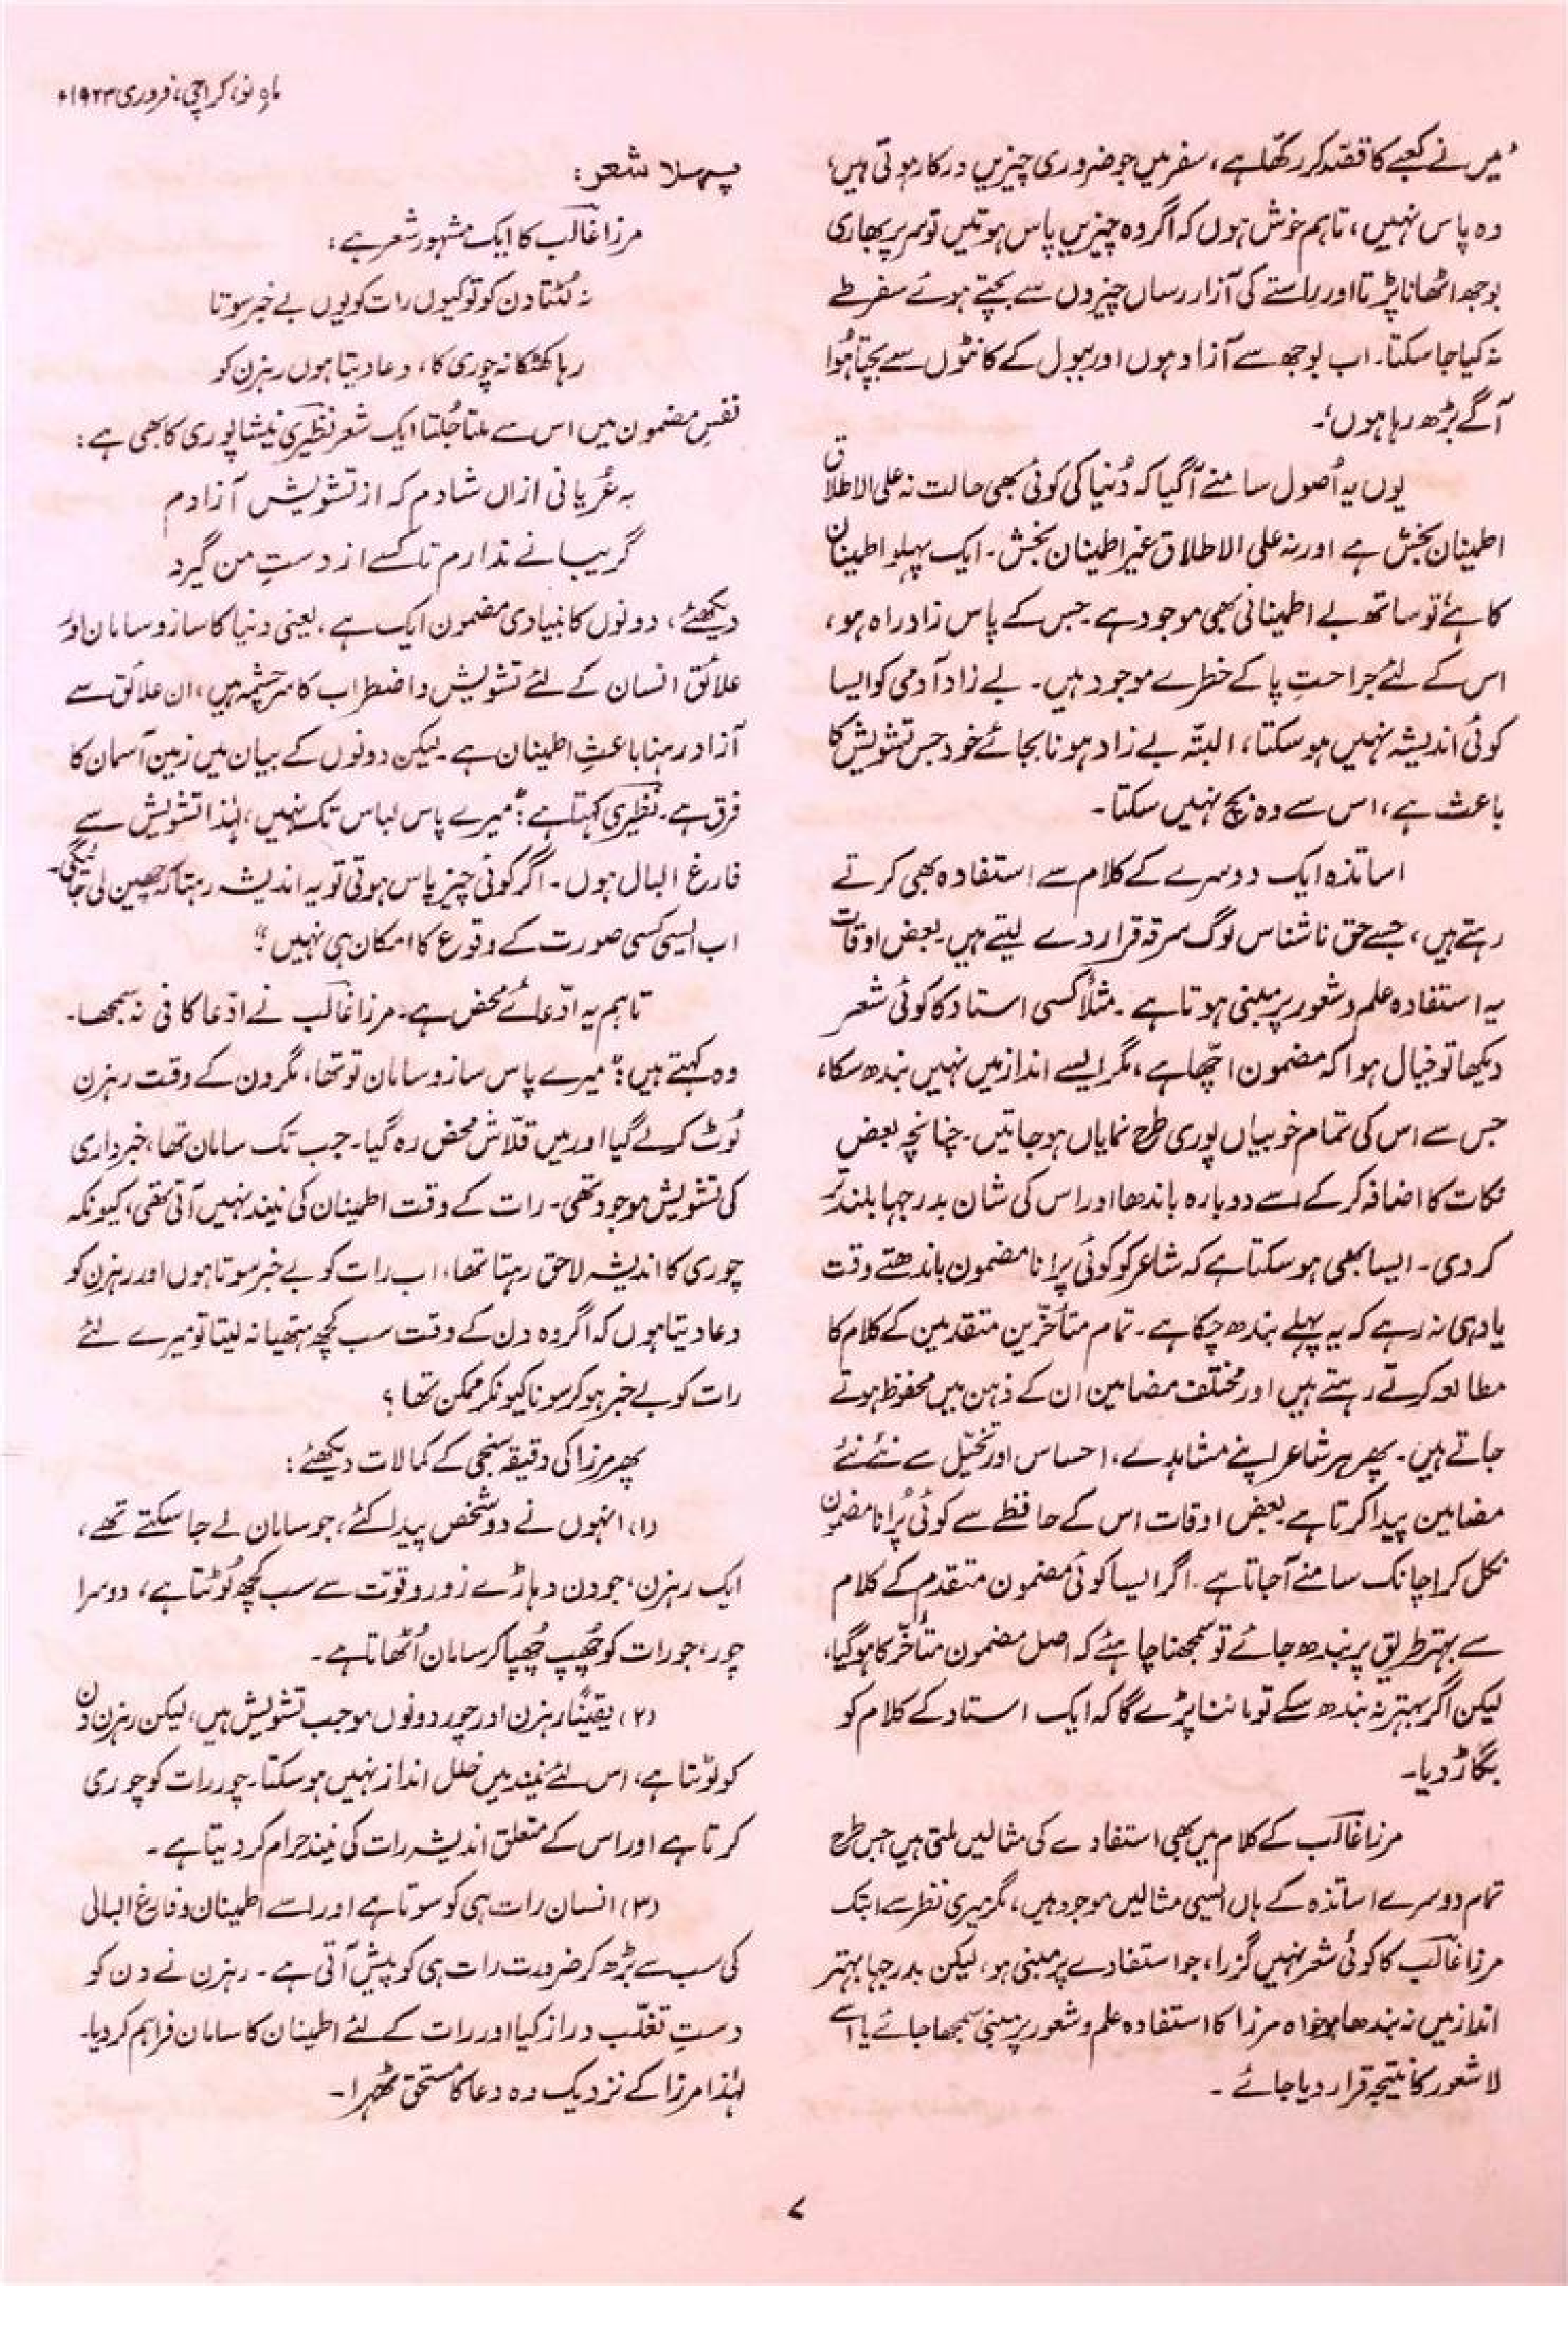 ماہِ نو، کراچی، فروری ۱۹۲۳ء
"میں نے کعبے کا قصد کر رکھا ہے، سفر میں جو ضروری چیزیں درکار ہوتی ہیں،
وہ پاس نہیں، تاہم خوش ہوں کہ اگر وہ چیزیں پاس ہوتیں تو سر پر بھاری
بوجھ اٹھانا پڑتا اور راستے کی آزار رساں چیزوں سے بچتے ہوئے سفر طے
نہ کیا جا سکتا۔ اب بوجھ سے آزاد ہوں اور ببول کے کانٹوں سے بچتا ہُوا
آگے بڑھ رہا ہوں"۔
یوں یہ اُصول سامنے آ گیا کہ دُنیا کی کوئی بھی حالت نہ علی الاطلاق
اطمینان بخش ہے اور نہ علی الاطلاق غیر اطمینان بخش۔ ایک پہلو اطمینان
کا ہے تو ساتھ بے اطمینانی بھی موجود ہے۔ جس کے پاس زادِ راہ ہو،
اس کے لئے جراحتِ پا کے خطرے موجود ہیں۔ بے زاد آدمی کو ایسا
کوئی اندیشہ نہیں ہو سکتا، البتّہ بے زاد ہونا بجائے خود جس تشویش کا
باعث ہے، اس سے وہ بچ نہیں سکتا۔
اساتذہ ایک دوسرے کے کلام سے استفادہ بھی کرتے
رہتے ہیں، جسے حق ناشناس لوگ سرقہ قرار دے لیتے ہیں۔ بعض اوقات
یہ استفادہ علم و شعور پر مبنی ہوتا ہے۔ مثلاً کسی استاد کا کوئی شعر
دیکھا تو خیال ہوا کہ مضمون اچّھا ہے، مگر ایسے انداز میں نہیں بندھ سکا،
جس سے اس کی تمام خوبیاں پوری طرح نمایاں ہو جاتیں۔ چنانچہ بعض
نکات کا اضافہ کر کے اسے دوبارہ باندھا اور اس کی شان بدرجہا بلند تر
کر دی۔ ایسا بھی ہو سکتا ہے کہ شاعر کو کوئی پرانا مضمون باندھتے وقت
یاد ہی نہ رہے کہ یہ پہلے بندھ چکا ہے۔ تمام متأخّرین متقدمین کے کلام کا
مطالعہ کرتے رہتے ہیں اور مختلف مضامین ان کے ذہن میں محفوظ ہوتے
جاتے ہیں۔ پھر ہر شاعر اپنے مشاہدے، احساس اور تخیّل سے نئے نئے
مضامین پیدا کرتا ہے بعض اوقات اس کے حافظے سے کوئی پُرانا مضمون
نکل کر اچانک سامنے آ جاتا ہے۔ اگر ایسا کوئی مضمون متقدم کے کلام
سے بہتر طریق پر بندھ جائے تو سمجھنا چاہئے کہ اصل مضمون متأخّر کا ہو گیا،
لیکن اگر بہتر نہ بندھ سکے تو ماننا پڑے گا کہ ایک استاد کے کلام کو
بگاڑ دیا۔
مرزا غالب کے کلام میں بھی استفادے کی مثالیں ملتی ہیں جس طرح
تمام دوسرے اساتذہ کے ہاں ایسی مثالیں موجود ہیں، مگر میری نظر سے ابتک
مرزا غالب کا کوئی شعر نہیں گزرا، جو استفادے پر مبنی ہو، لیکن بدرجہا بہتر
انداز میں نہ بندھا ہو خواہ مرزا کا استفادہ علم و شعور پر مبنی سمجھا جائے یا اسے
لا شعور کا نتیجہ قرار دیا جائے۔
پہلا شعر:
مرزا غالب کا ایک مشہور شعر ہے:
نہ لُٹتا دن کو تو کیوں رات کو یوں بے خبر سوتا
رہا کھٹکا نہ چوری کا، دعا دیتا ہوں رہزن کو
نفسِ مضمون میں اس سے ملتا جُلتا ایک شعر نظیری نیشاپوری کا بھی ہے:
بہ عُریانی ازاں شادم کہ از تشویش آزادم
گریبانے ندارم تا کسے از دستِ من گیرد
دیکھئے، دونوں کا بنیادی مضمون ایک ہے، یعنی دنیا کا ساز و سامان اور
علائق انسان کے لئے تشویش و اضطراب کا سرچشمہ ہیں، ان علائق سے
آزاد رہنا باعثِ اطمینان ہے۔ لیکن دونوں کے بیان میں زمین آسمان کا
فرق ہے۔ نظیری کہتا ہے: "میرے پاس لباس تک نہیں، لہٰذا تشویش سے
فارغ البال ہوں۔ اگر کوئی چیز پاس ہوتی تو یہ اندیشہ رہتا کہ چھین لی جائیگی۔
اب ایسی کسی صورت کے وقوع کا امکان ہی نہیں"۔
تاہم یہ ادّعائے محض ہے۔ مرزا غالب نے ادّعا کافی نہ سمجھا۔
وہ کہتے ہیں: "میرے پاس ساز و سامان تو تھا، مگر دن کے وقت رہزن
لُوٹ کر لے گیا اور میں قلّاش محض رہ گیا۔ جب تک سامان تھا، خبرداری
کی تشویش موجود تھی۔ رات کے وقت اطمینان کی نیند نہیں آتی تھی، کیونکہ
چوری کا اندیشہ لاحق رہتا تھا، اب رات کو بے خبر سوتا ہوں اور رہزن کو
دعا دیتا ہوں کہ اگر وہ دن کے وقت سب کچھ ہتھیا نہ لیتا تو میرے لئے
رات کو بے خبر ہو کر سونا کیونکر ممکن تھا؟
پھر مرزا کی دقیقہ سنجی کے کمالات دیکھئے:
(۱) انہوں نے دو شخص پیدا کئے، جو سامان لے جا سکتے تھے،
ایک رہزن، جو دن دہاڑے زور و قوّت سے سب کچھ لُوٹتا ہے، دوسرا
چور، جو رات کو چُھپ چُھپا کر سامان اُٹھاتا ہے۔
(۲) یقیناً رہزن اور چور دونوں موجب تشویش ہیں، لیکن رہزن دن
کو لوٹتا ہے، اس لئے نیند میں خلل انداز نہیں ہو سکتا۔ چور رات کو چوری
کرتا ہے اور اس کے متعلق اندیشہ رات کی نیند حرام کر دیتا ہے۔
(۳) انسان رات ہی کو سوتا ہے اور اسے اطمینان و فارغ البالی
کی سب سے بڑھ کر ضرورت رات ہی کو پیش آتی ہے۔ رہزن نے دن کو
دستِ تغلّب دراز کیا اور رات کے لئے اطمینان کا سامان فراہم کر دیا۔
لہٰذا مرزا کے نزدیک وہ دعا کا مستحق ٹھہرا۔
۷